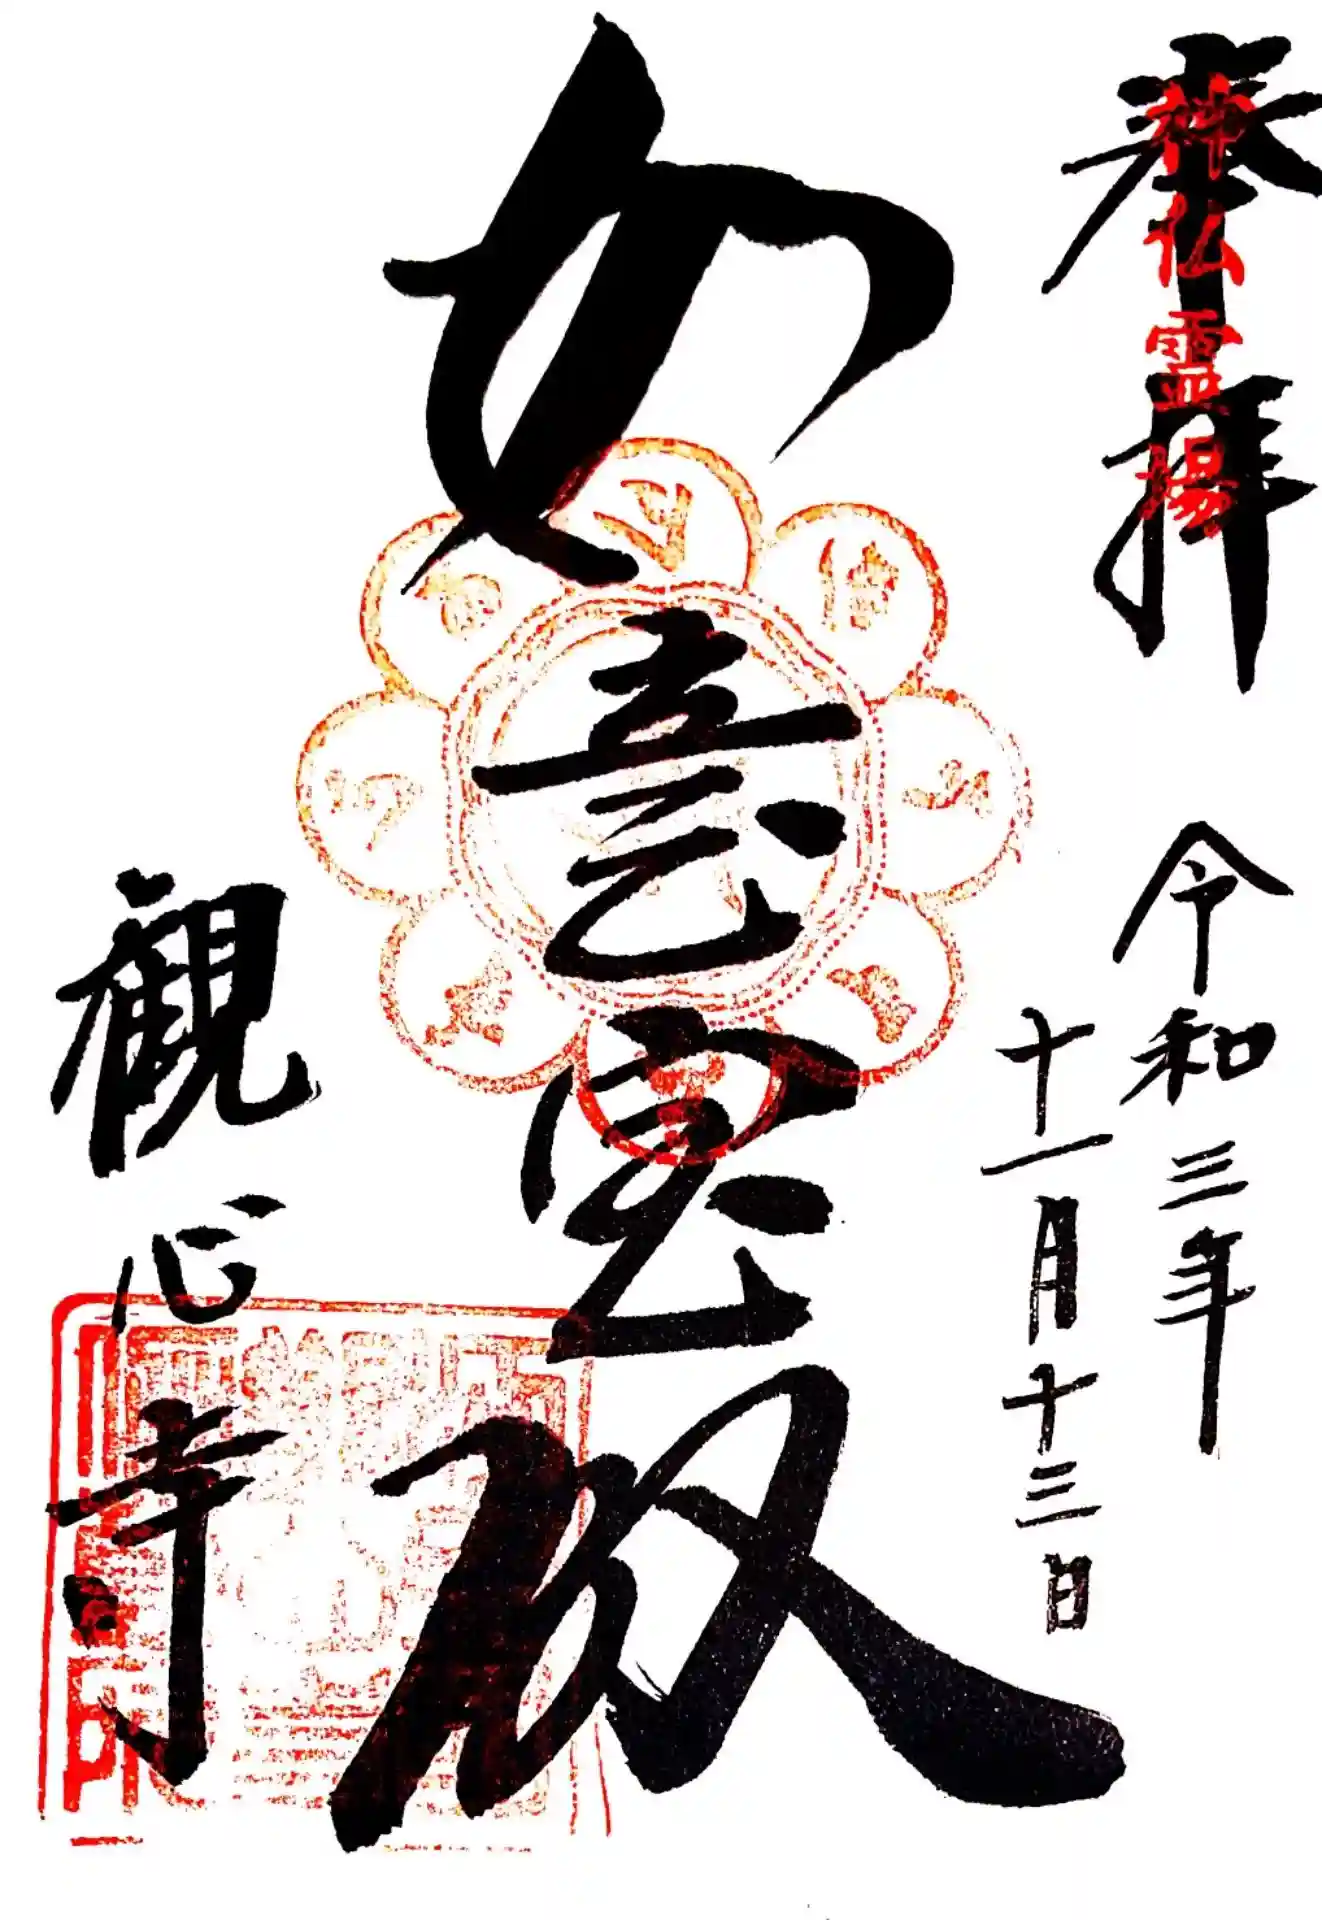 奉拝
神仏霊場
令和三年
十一月十三日
如意宝殿
観心寺